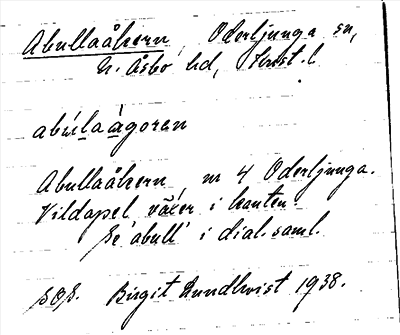 Abullaåkern, Oderljunga sn,
N. Åsbo hd, Krist. l
abúlaàgoren
Abullaåkern, nr 4 Oderljunga.
Vildapel växer i kanten.
Se 'abull' i dial. saml.
Birgit Lundkvist 1938.